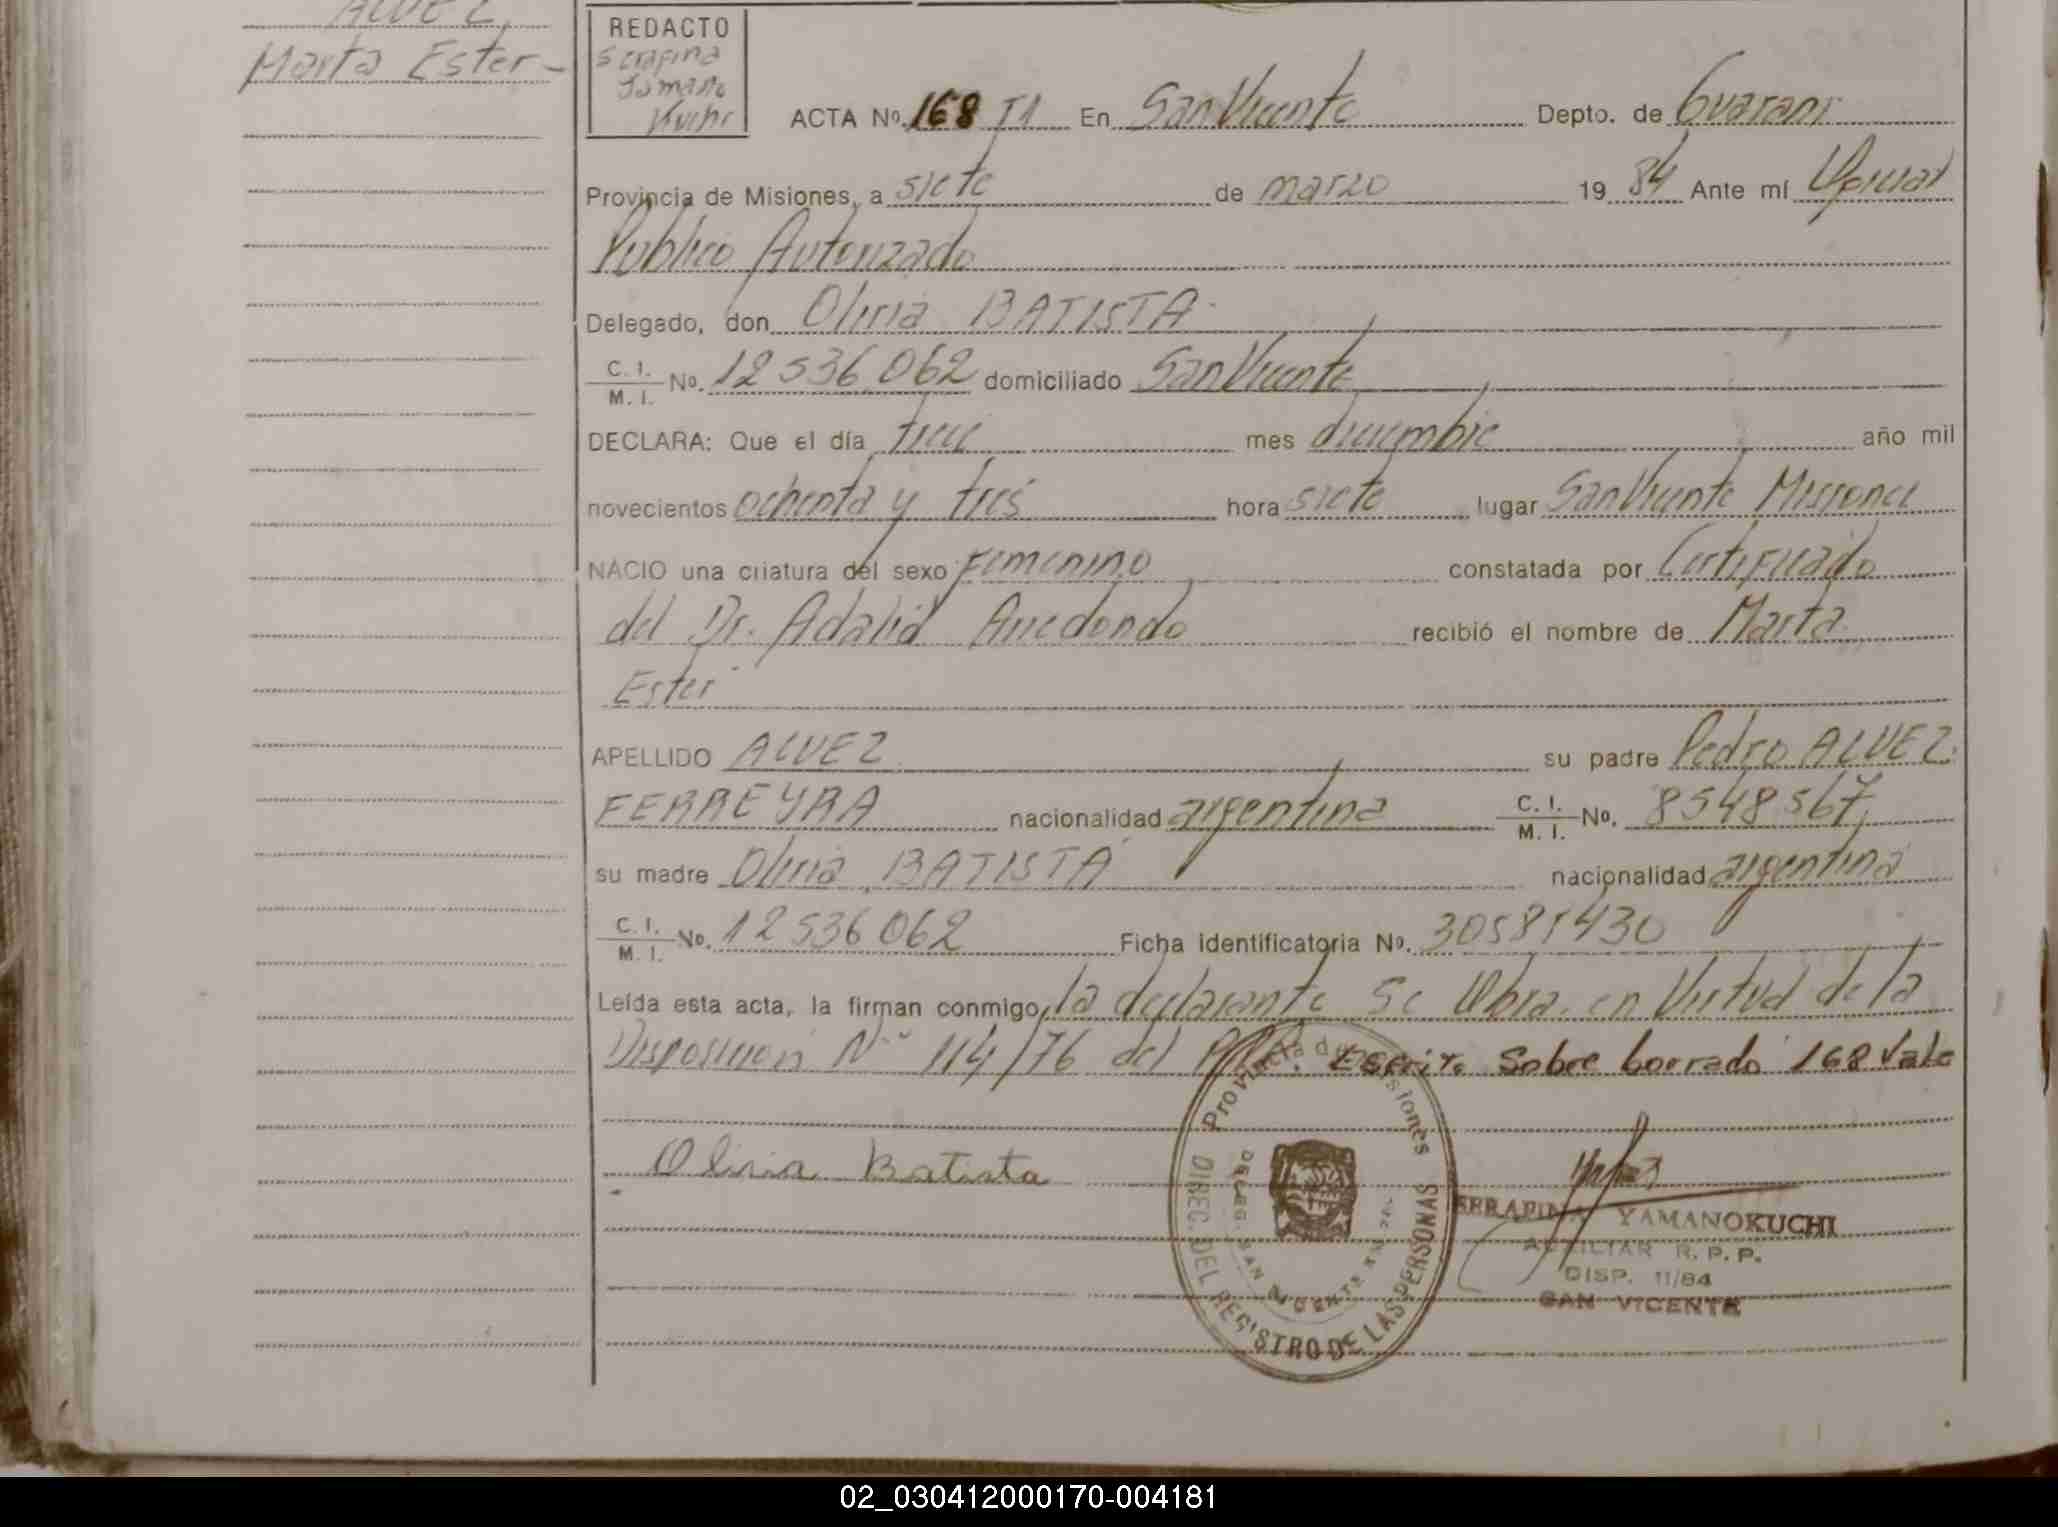 ALVEZ
Marta Ester-
REDACTO
Serafina
Yamano
Kuchi
ACTA No. 168 T1 En San Vicente Depto. de Guarani
Provincia de Misiones, a siete de marzo 1984 Ante mí Oficial
Publico Autorizado
Delegado, don Oliria BATISTA
C. I. / M. I. No. 12536062 domiciliado San Vicente
DECLARA: Que el día trece mes diciembre año mil
novecientos ochenta y tres hora siete lugar San Vicente Misiones
NACIO una criatura del sexo Femenino constatada por Certificado
del Dr. Adalid Arredondo recibió el nombre de Marta
Ester
APELLIDO ALVEZ su padre Pedro ALVEZ
FERREYRA nacionalidad argentina C. I. / M. I. No. 8548567
su madre Oliria BATISTA nacionalidad argentina
C. I. / M. I. No. 12536062 Ficha identificatoria No. 30581430
Leída esta acta, la firman conmigo, la declarante Se Obra en Virtud de la
Disposicion Nº 114/76 del Escrito Sobre borrado 168 Vale
Oliria Batista
Provincia de Misiones
DIREC. DEL REGISTRO DE LAS PERSONAS
DELEG. SAN VICENTE
SERAFINA YAMANOKUCHI
AUXILIAR R. P. P.
DISP. 11/84
SAN VICENTE
02_030412000170-004181